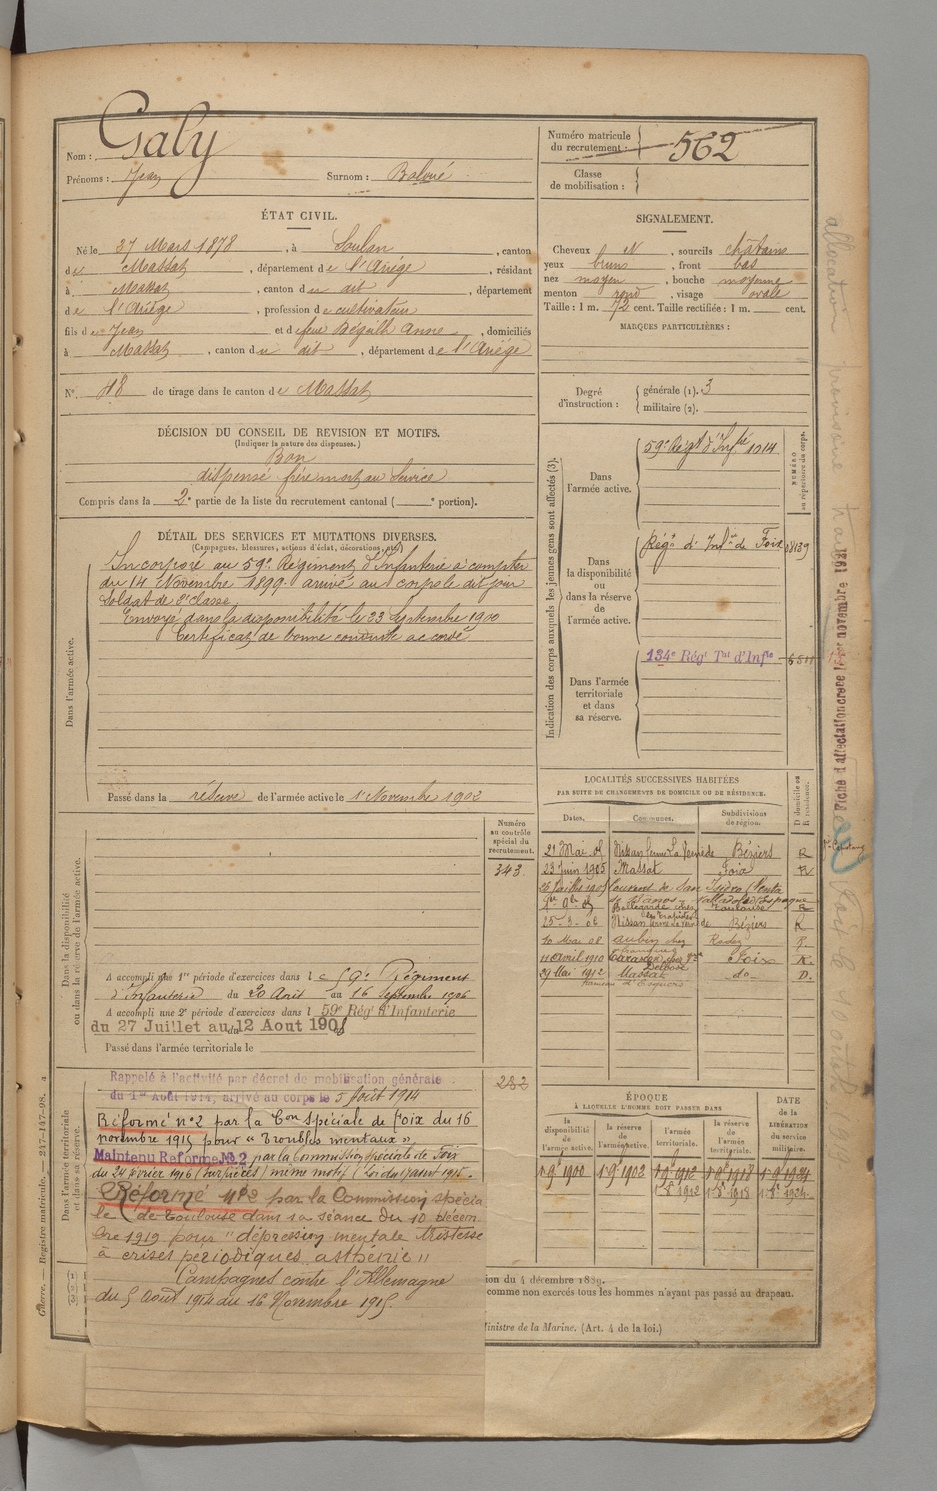 Nom : Galy
Prénoms : Jean Surnom : Baloué
Numéro matricule du recrutement : 562
Classe de mobilisation :
ÉTAT CIVIL.
Né le 27 Mars 1878, à Soulan, canton
de Massat, département de l'Ariège, résidant
à Massat, canton du dit, département
de l'Ariège, profession de cultivateur
fils de Jean et de feue Bégaill Anne, domiciliés
à Massat, canton du dit, département de l'Ariège
N° 48 de tirage dans le canton de Massat
SIGNALEMENT.
Cheveux N, sourcils châtains
yeux bruns, front bas
nez moyen, bouche moyenne
menton rond, visage ovale
Taille : 1 m. 72 cent. Taille rectifiée : 1 m. cent.
MARQUES PARTICULIÈRES :
Degré d'instruction : générale (1). 3
militaire (2).
DÉCISION DU CONSEIL DE REVISION ET MOTIFS.
(Indiquer la nature des dispenses.)
Bon
dispensé frère mort au Service
Compris dans la 2e partie de la liste du recrutement cantonal ( e portion).
DÉTAIL DES SERVICES ET MUTATIONS DIVERSES.
(Campagnes, blessures, actions d'éclat, décorations, etc.)
Dans l'armée active.
Incorporé au 59e Régiment d'Infanterie à compter
du 14 Novembre 1899. arrivé au corps le dit jour
Soldat de 2e classe
Envoyé dans la disponibilité le 23 Septembre 1900
Certificat de bonne conduite accordé
Passé dans la réserve de l'armée active le 1er Novembre 1902
Indication des corps auxquels les jeunes gens sont affectés (3).
NUMÉRO au répertoire du corps.
Dans l'armée active.
59e Régt d'Infie 1914
Dans la disponibilité ou dans la réserve de l'armée active.
Régt d'Infie de Foix
Dans l'armée territoriale et dans sa réserve.
134e Régt Tal d'Infie
LOCALITÉS SUCCESSIVES HABITÉES
PAR SUITE DE CHANGEMENTS DE DOMICILE OU DE RÉSIDENCE.
Dates. Communes. Subdivisions de région. D domicile ou R résidence.
21 Mai 05 Nissan Béziers R
23 Juin 1905 Massat Foix R
Toulouse R
25-3-06 Nissan Béziers R
10 Mai 08 Aubin Rodez R
11 Avril 1910 Foix R.
29 Mai 1912 Massat do D.
hameau d'Espiers
Numéro au contrôle spécial du recrutement.
343
Dans la disponibilité ou dans la réserve de l'armée active.
A accompli une 1re période d'exercices dans le 59e Régiment
d'Infanterie du 20 Août au 16 Septembre 1906
A accompli une 2e période d'exercices dans l 59e Régt d'Infanterie
du 27 Juillet au 12 Aout 1908
Passé dans l'armée territoriale le
Dans l'armée territoriale et dans sa réserve.
Rappelé à l'activité par décret de mobilisation générale
du 1er Août 1914, arrivé au corps le 5 Août 1914
Réformé n°2 par la Con Spéciale de Foix du 16
novembre 1915 pour "Troubles mentaux"
Maintenu Réformé N° 2 par la Commission spéciale de Foix
du 24 février 1916 (Sur pièces) même motif (Loi du 17 aout 1915.
Réformé N°2 par la Commission spécia
le de Toulouse dans sa séance du 10 Décem
bre 1919 pour "dépression mentale tristesse
à crises périodiques, asthénie"
Campagnes contre l'Allemagne
du 5 Août 1914 au 16 Novembre 1915.
ÉPOQUE
À LAQUELLE L'HOMME DOIT PASSER DANS
la disponibilité de l'armée active. la réserve de l'armée active. l'armée territoriale. la réserve de l'armée territoriale.
DATE de la LIBÉRATION du service militaire.
1 9bre 1900 1 9bre 1902 1 9bre 1912 1 9bre 1918 1 9bre 1924
1er 8bre 1912 1er 8bre 1918 1er 8bre 1924
ion du 4 décembre 1889.
comme non exercés tous les hommes n'ayant pas passé au drapeau.
Ministre de la Marine. (Art. 4 de la loi.)
Guerre. — Registre matricule. — 247-147-98.
(1)
(2)
(3)